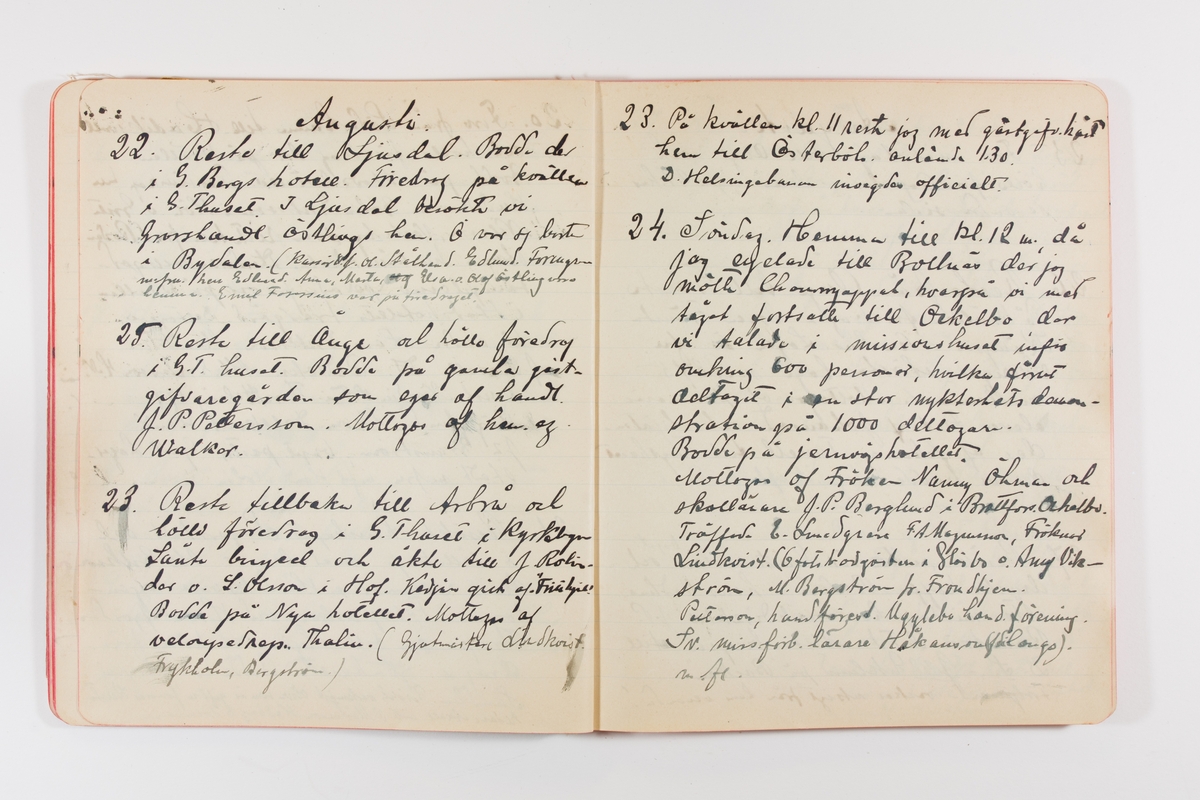 Augusti.
22. Reste till Ljusdal. Bodde der
i G. Bergs hotell. Föredrag på kvällen
i G.T huset. I Ljusdal besökte vi
Grosshandl. Östlings hem. Ö var ej borta
i Bydalen (
hem Edlund. Anna, Märta, Elsa o. Olof Östling
hemma. Emil Forssens var på föredraget.
25. Reste till Ånge och höllo föredrag
i G.T. huset. Bodde på gamla gäst-
gifvaregården som eges af handl.
J. P. Petersson. Mottogos af hr.
Walkor.
23. Reste tillbaka till Arbrå och
höllo föredrag i G. T huset i Kyrkbyn
Lånte bicycel och åkte till J Rolin-
der o. L. Olsson i Hof. Kedjan gick af.
Bodde på Nya hotellet. Mottogs af
Thalin. ( Lindkvist.
Frykholm, Bergström.)
23. På kvällen kl. 11 reste jag med gästgifv. häst
hem till Österböle. anlände 1.30.
D. Helsingebanan invigdes officielt.
24. Söndag. Hemma till kl. 12 m., då
jag cyclade till Bollnäs der jag
mötte hvarpå vi med
tåget fortsatte till Ockelbo der
vi talade i missionshuset inför
omkring 600 personer, hvilka förut
deltagit i en stor nykterhets demon-
stration på 1000 deltagare.
Bodde på jernvägshotellet.
Mottogos af Fröken Nanny Öhman och
skollärare J. P. Berglund i Brattfors. Ockelbo.
Träffade E. Lindgren F. A. Magnusson, Fröknar
Lindkvist. (6 o. Amy Vik-
ström, M. Bergström fr. Trondhjem.
Petterson, handförest. Ugglebo hand. förening.
Sv. missförb. lärare Håkanson
m. fl.